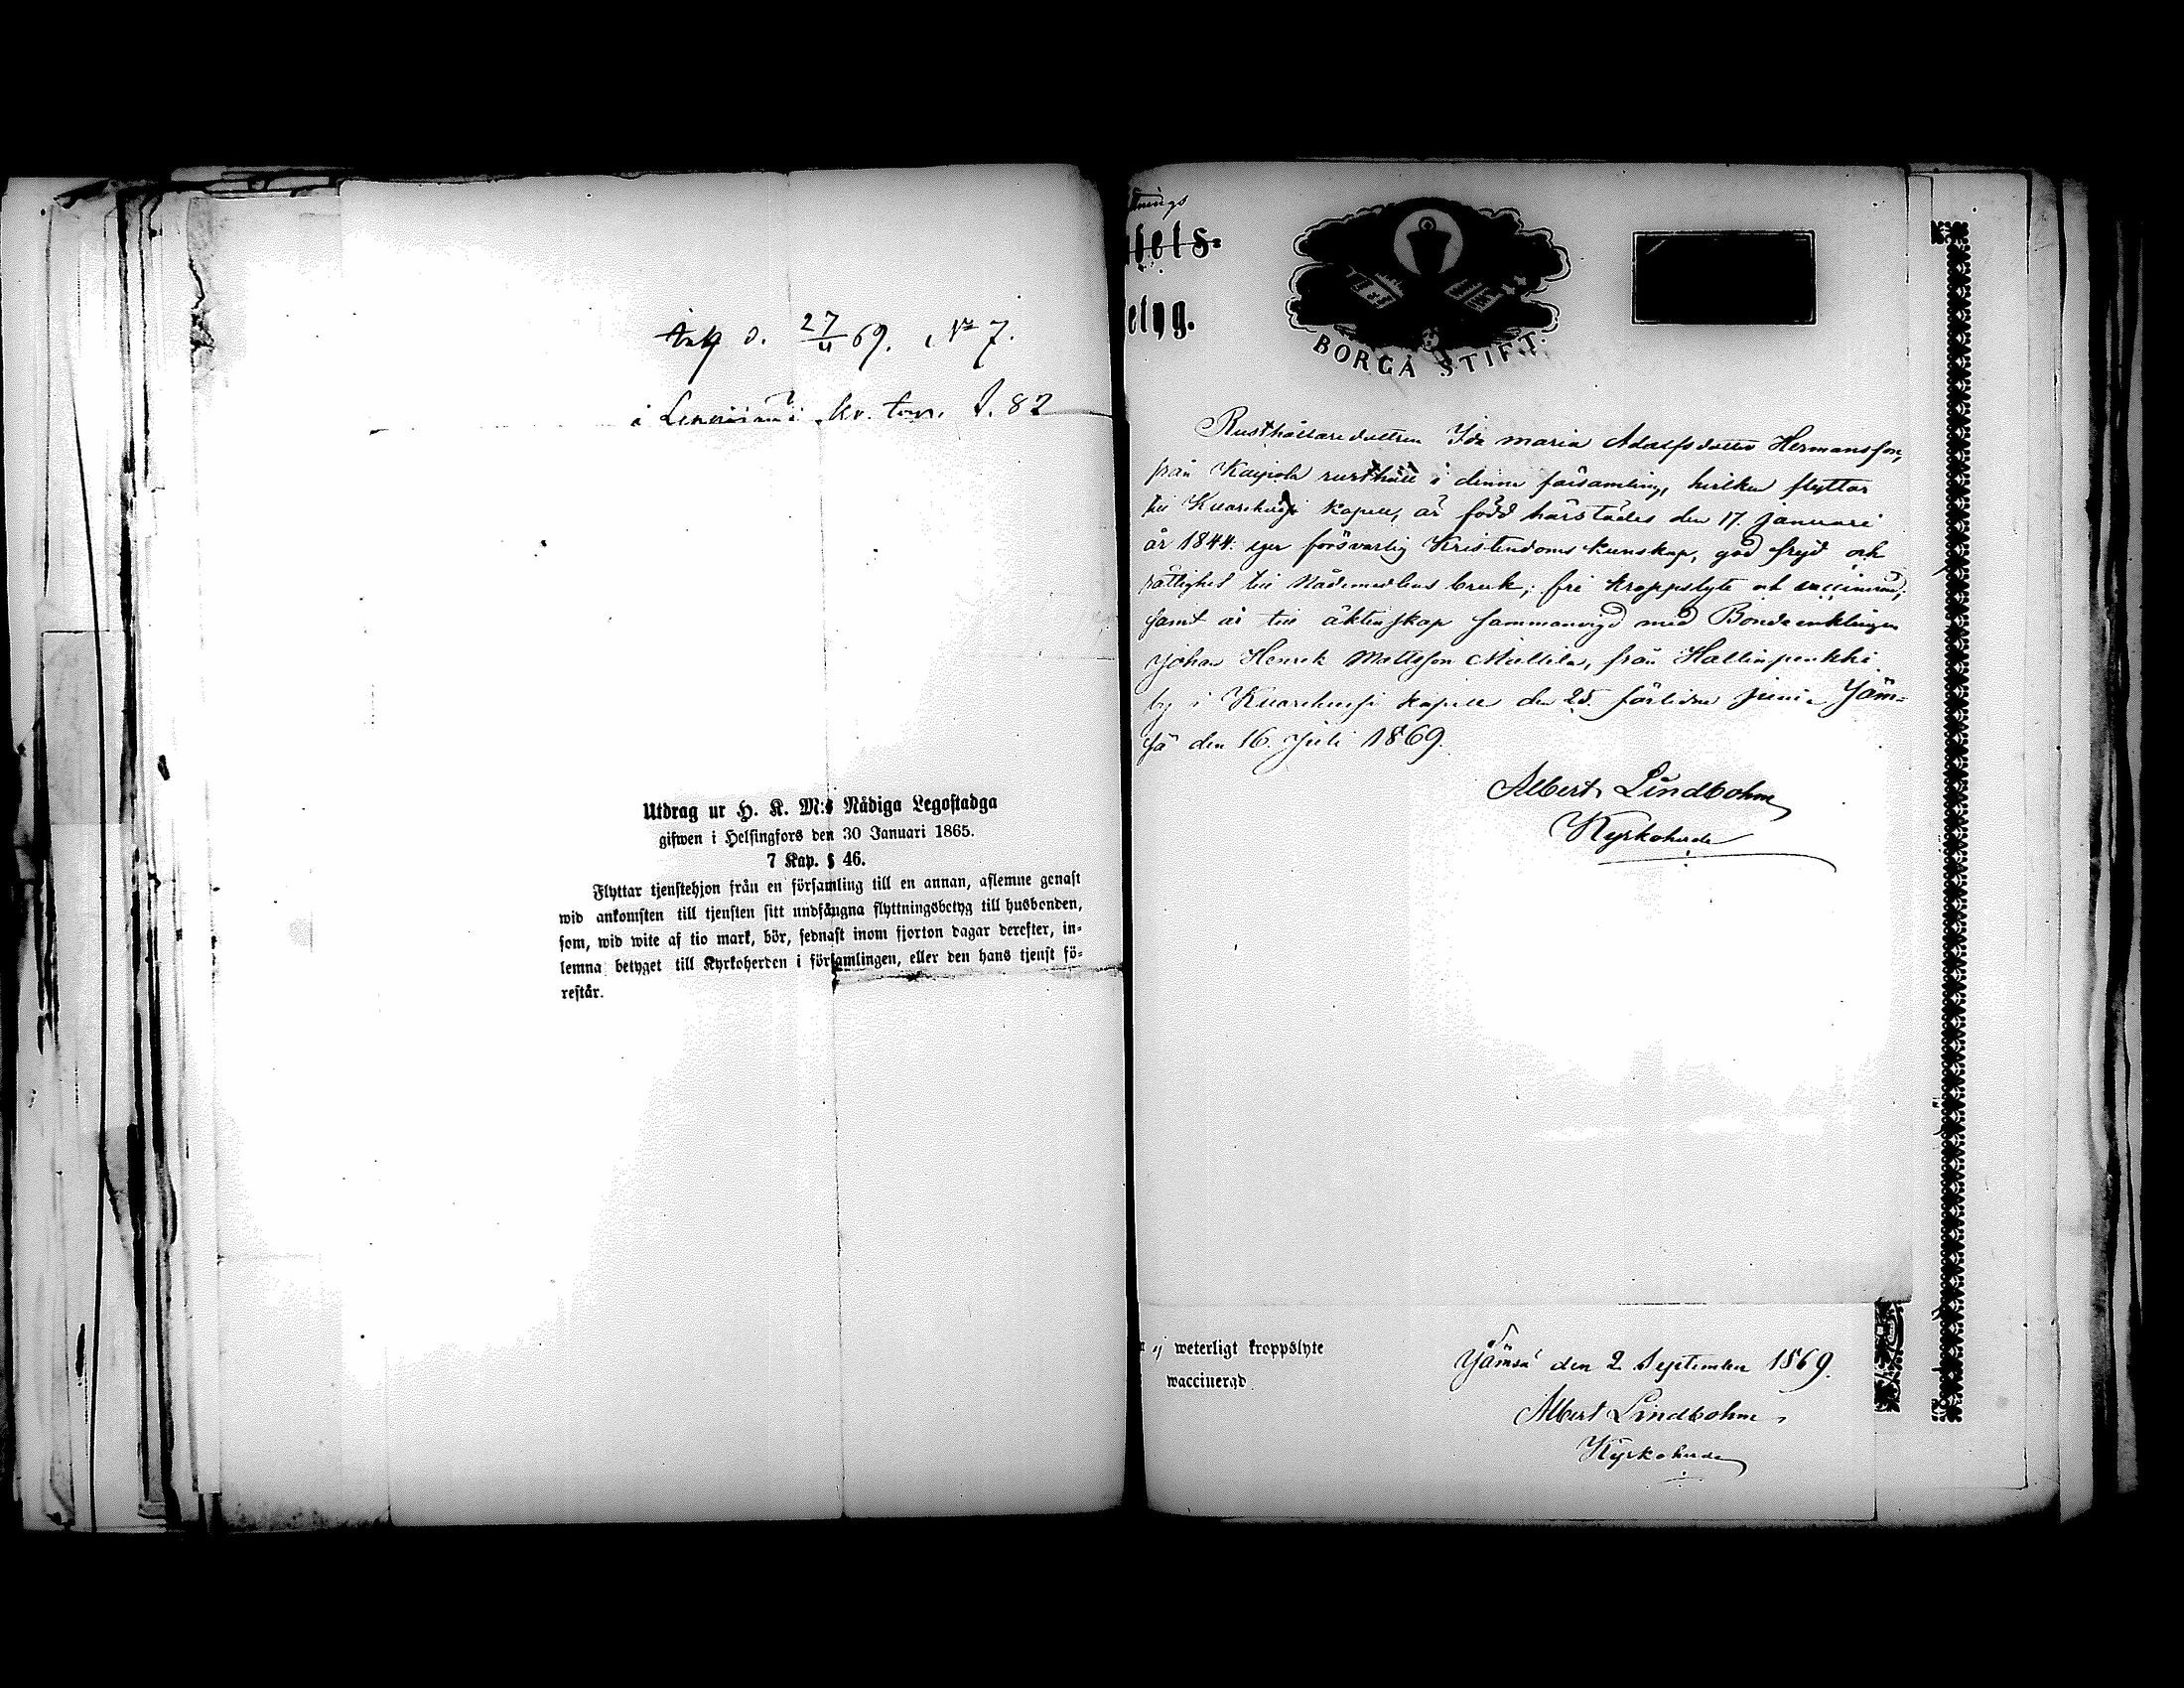 Ank d. 27/11 69. № 7.
i kr. tom. S. 82
Utdrag ur H. K. M:s Nådiga Legostadga
gifwen i Helsingfors den 30 Januari 1865.
7 Kap. § 46.
Flyttar tjenstehjon från en församling till en annan, aflemne genast
wid ankomsten till tjensten sitt undfångna flyttningsbetyg till husbonden,
som, wid wite af tio mark, bör, sednast inom fjorton dagar derefter, in-
lemna betyget till Kyrkoherden i församlingen, eller den hans tjenst fö-
restår.
ttnings
fsets-
etyg.
BORGÅ STIFT.
Rusthållaredottren Ida Maria Adolfsdotter Hermansson,
från Kaipola rusthåll i denna församling, hvilken flyttar
till Kuorehvesi kapell, är född härstädes den 17. Januari
år 1844. eger försvarlig Kristendoms kunskap, god frejd och
rättighet till Nådemedlens bruk; fri kroppslyte och vaccinerad,
samt är till äktenskap sammanvigd med Bondeenklingen
Johan Henrik Mattsson Mattila, från Hallinpenkki
by i Kuorehvesi kapell den 25. förlidne Juni. Jäm-
sä den 16. Juli 1869.
Albert Lindbohm
Kyrkoherde
ej weterligt kroppslyte
waccinerad
Jämsä den 2 September 1869.
Albert Lindbohm
Kyrkoherde